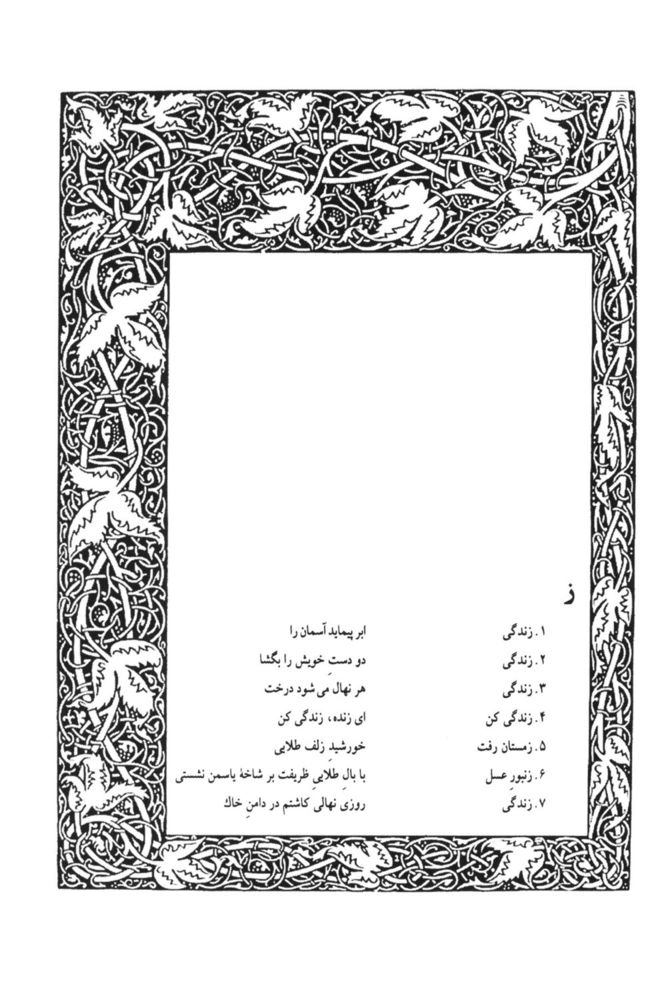 ز
۱. زندگی ابر پیماید آسمان را
۲. زندگی دو دستِ خویش را بگشا
۳. زندگی هر نهال می‌شود درخت
۴. زندگی کن ای زنده، زندگی کن
۵. زمستان رفت خورشیدِ زلف طلایی
۶. زنبورِ عسل با بالِ طلاییِ ظریفت بر شاخهٔ یاسمن نشستی
۷. زندگی روزی نهالی کاشتم در دامنِ خاك